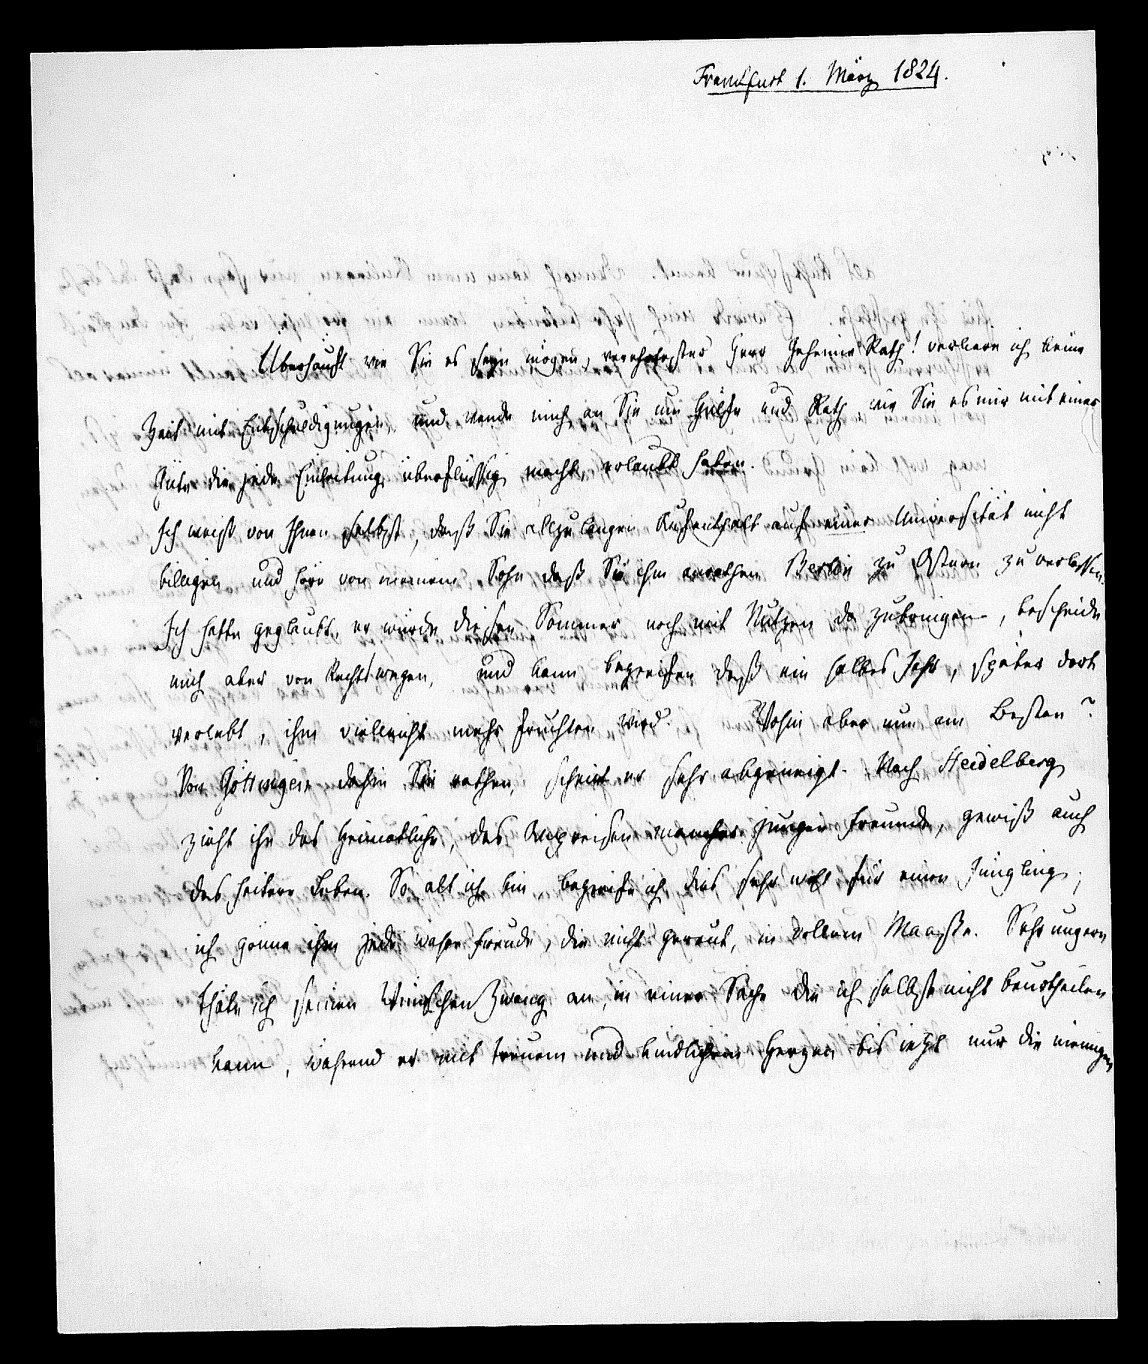 Frankfurt 1. März 1824.
Überhäuft wie Sie es seyn mögen, verehrtester Herr Geheime Rath! verliere ich keine
Zeit mit Entschuldigungen, und wende mich an Sie um Hülfe und Rath, wie Sie es mir mit einer
Güte die jede Einleitung überflüssig macht, erlaubt haben.
Ich weiß von Ihnen selbst, daß Sie allzulangen Aufenthalt auf einer Universität nicht
billigen und höre von meinem Sohn, daß Sie ihm anrathen Berlin zu Ostern zu verlassen.
Ich hatte geglaubt, er würde diesen Sommer noch mit Nutzen da zubringen, bescheide
mich aber von Rechtswegen, und kann begreifen daß ein halbes Jahr, später dort
verlebt, ihm vielleicht mehr fruchten wird. Wohin aber nun am Besten?
Von Göttingen, dahin Sie rathen, scheint er sehr abgeneigt. Nach Heidelberg
zieht ihn das Heimathliche, das Anpreisen mancher junger Freunde, gewiß auch
das heitere Leben. So alt ich bin, begreife ich dies sehr wohl für einen Jüngling;
ich gönne ihm jede wahre Freude, die nicht gereut, in vollem Maaße. Sehr ungern
thäte ich seinen Wünschen Zwang an, in einer Sache die ich selbst nicht beurtheilen
kann, während er mit treuem und kindlichem Herzen bis jetzt nur die meinigen